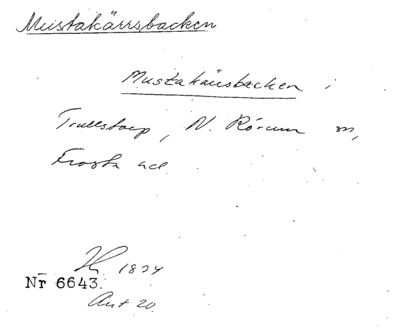 Mustakärrsbacken
Mustakärrsbacken i
Trullstorp, N. Rörum sn,
Frosta hd
1874
Nr 6643.
Ant 20.